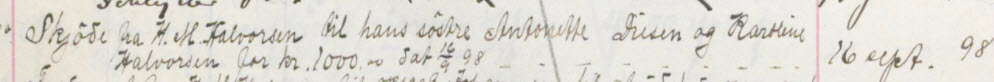 Skjöde fra H. M. Halvorsen til hans söstre Antonette Iversen og Karoline
Halvorsen for kr. 1000.00 dat 16/9 98
16 sept. 98